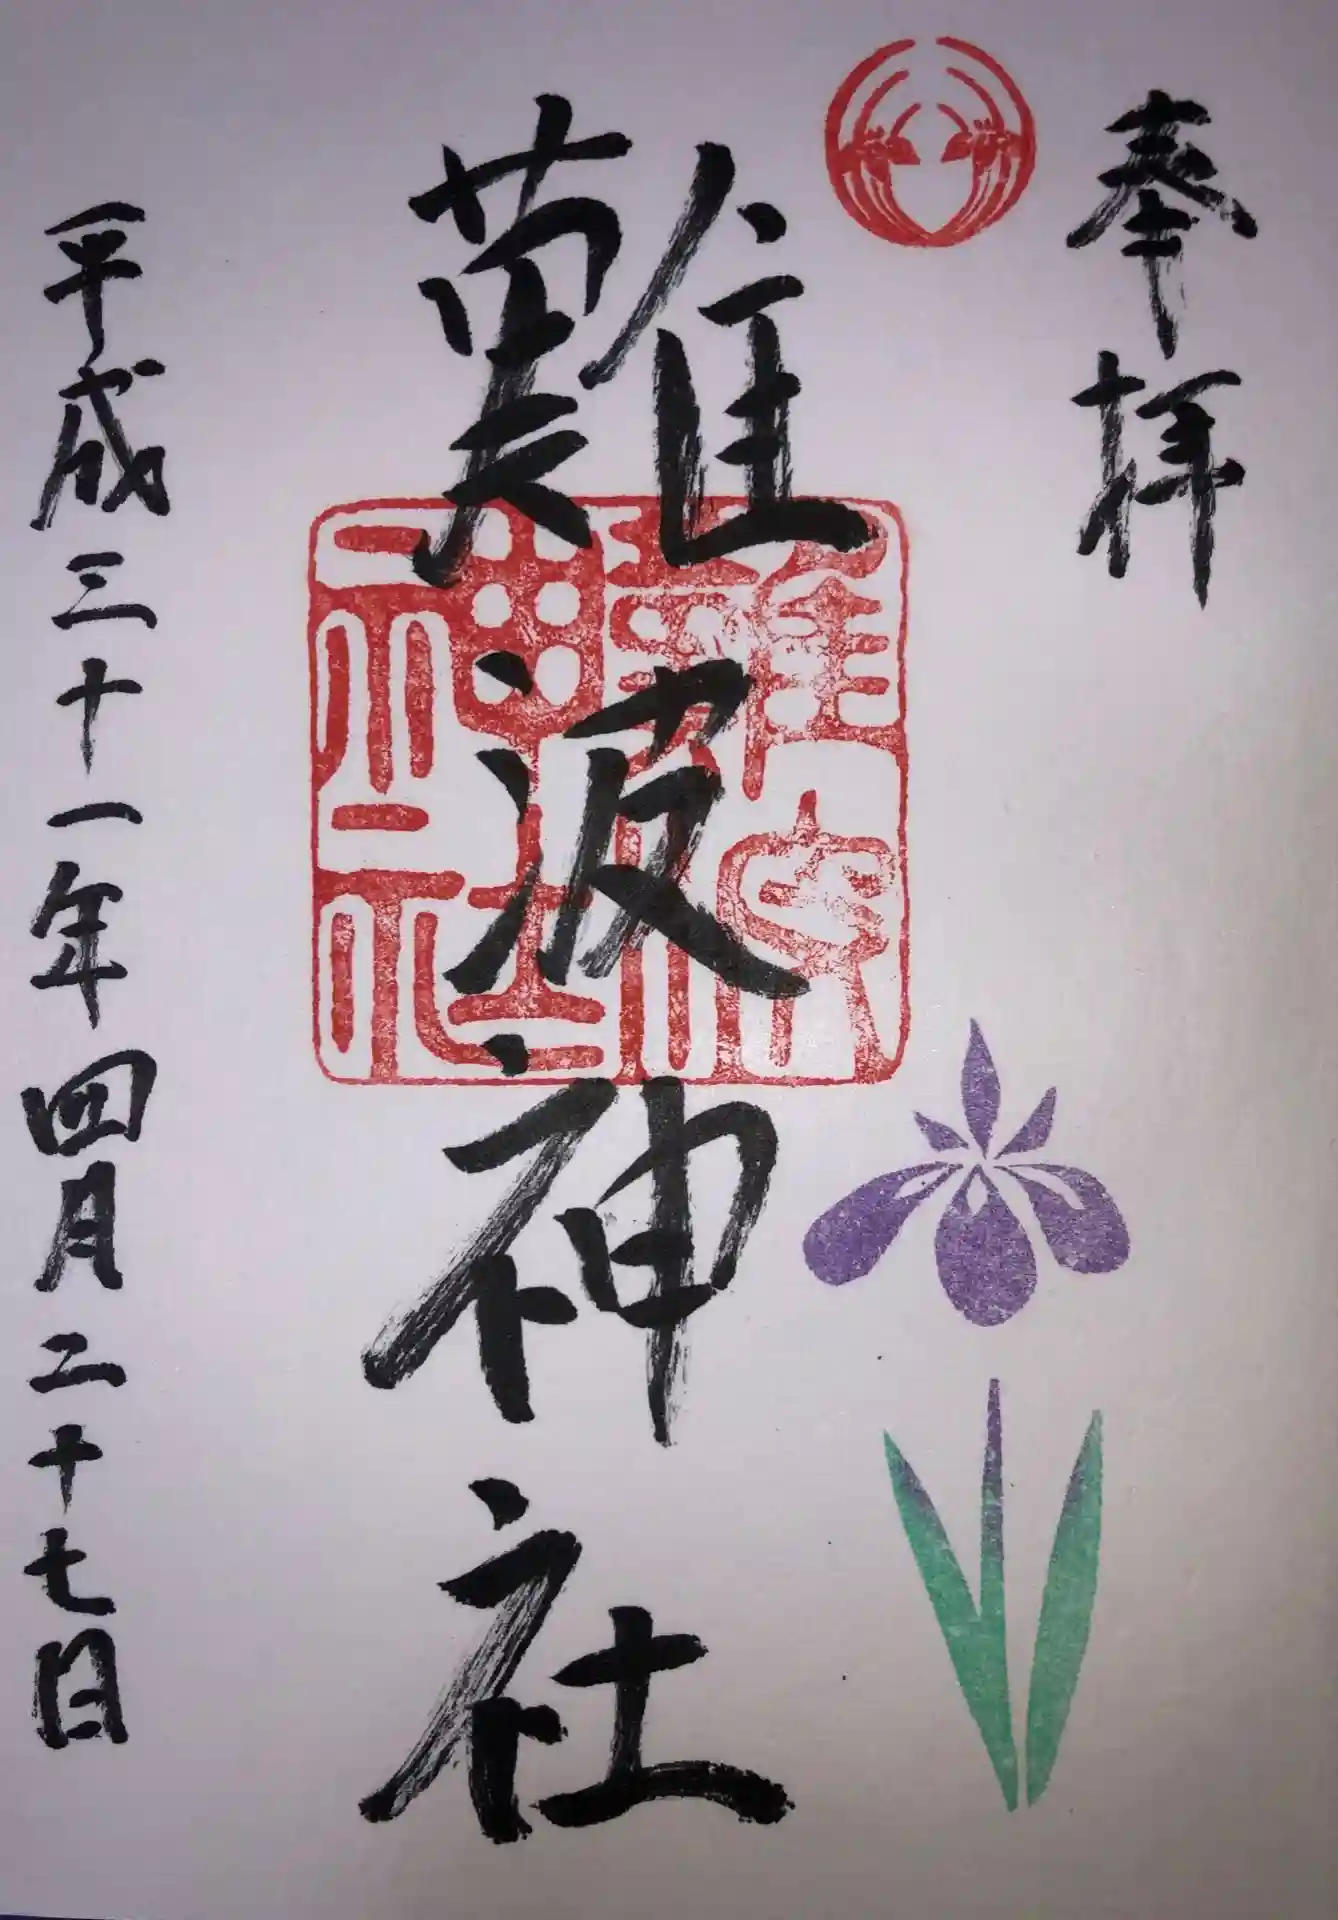 奉拝
難波神社
難波神社
平成三十一年四月二十七日